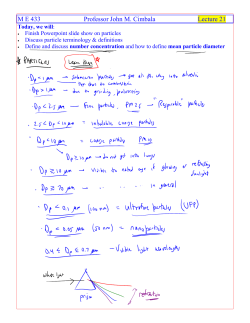 M E 433 Professor John M. Cimbala Lecture 21
Today, we will:
• Finish Powerpoint slide show on particles
• Discuss particle terminology & definitions
• Define and discuss number concentration and how to define mean particle diameter
* PARTICLES Learn these *
• Dp < 1 μm →
• Dp > 1 μm → due to grinding, processing
• Dp < 2.5 μm → Fine particles, PM 2.5 → Respirable particles
• 2.5 < Dp < 10 μm → inhalable coarse particles
• Dp < 10 μm = coarse particles PM10
Dp ≥ 10 μm → do not get into lungs
• Dp ≥ 50 μm → visible to naked eye if glowing or reflecting sunlight
• Dp ≥ 70 μm → " " " in general
• Dp < 0.1 μm (100 nm) = ultrafine particles (UFP)
• Dp < 0.05 μm (50 nm) = nanoparticles
0.4 ≤ Dp ≤ 0.7 μm → Visible light wavelengths
white light
prism
refraction